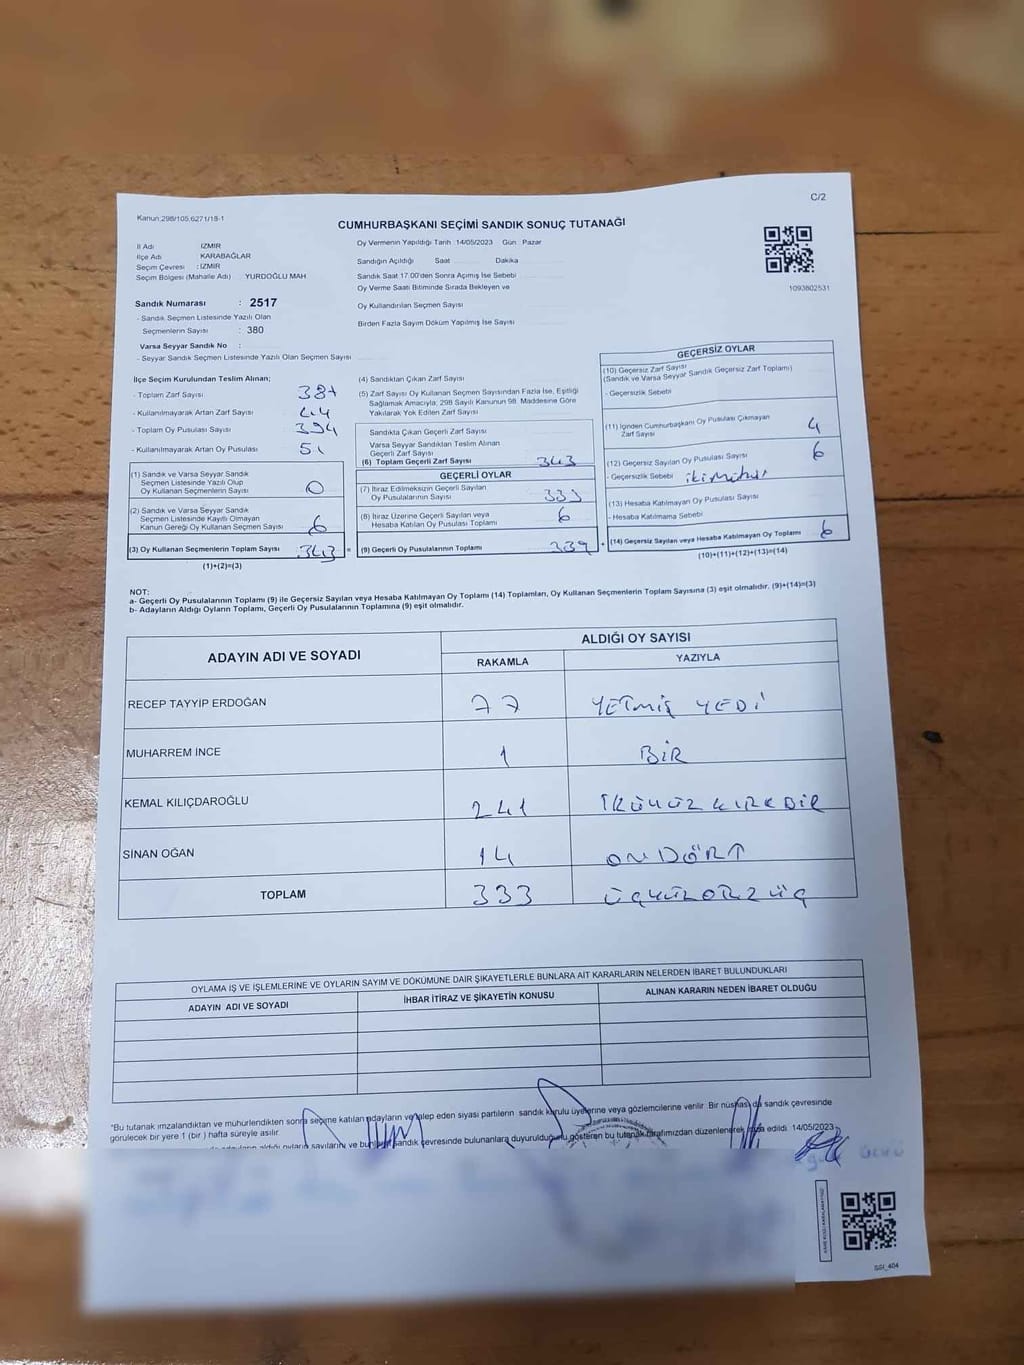 C/2
Kanun:298/105.6271/18-1
CUMHURBAŞKANI SEÇİMİ SANDIK SONUÇ TUTANAĞI
İl Adı İZMİR
İlçe Adı KARABAĞLAR
Seçim Çevresi : İZMİR
Seçim Bölgesi (Mahalle Adı) YURDOĞLU MAH
Sandık Numarası : 2517
- Sandık Seçmen Listesinde Yazılı Olan
Seçmenlerin Sayısı : 380
Varsa Seyyar Sandık No :
- Seyyar Sandık Seçmen Listesinde Yazılı Olan Seçmen Sayısı
Oy Vermenin Yapıldığı Tarih :14/05/2023 Gün : Pazar
Sandığın Açıldığı Saat Dakika
Sandık Saat 17.00'den Sonra Açımış İse Sebebi
Oy Verme Saati Bitiminde Sırada Bekleyen ve
Oy Kullandırılan Seçmen Sayısı
Birden Fazla Sayım Döküm Yapılmış İse Sayısı
1093802531
İlçe Seçim Kurulundan Teslim Alınan;
- Toplam Zarf Sayısı
- Kullanılmayarak Artan Zarf Sayısı 44
- Toplam Oy Pusulası Sayısı 394
- Kullanılmayarak Artan Oy Pusulası 51
(1) Sandık ve Varsa Seyyar Sandık
Seçmen Listesinde Yazılı Olup
Oy Kullanan Seçmenlerin Sayısı 0
(2) Sandık ve Varsa Seyyar Sandık
Seçmen Listesinde Kayıtlı Olmayan
Kanun Gereği Oy Kullanan Seçmen Sayısı 6
(3) Oy Kullanan Seçmenlerin Toplam Sayısı 343 =
(1)+(2)=(3)
(4) Sandıktan Çıkan Zarf Sayısı
(5) Zarf Sayısı Oy Kullanan Seçmen Sayısından Fazla İse, Eşitliği
Sağlamak Amacıyla; 298 Sayılı Kanunun 98. Maddesine Göre
Yakılarak Yok Edilen Zarf Sayısı
Sandıkta Çıkan Geçerli Zarf Sayısı
Varsa Seyyar Sandıktan Teslim Alınan
Geçerli Zarf Sayısı
(6) Toplam Geçerli Zarf Sayısı 343
GEÇERLİ OYLAR
(7) İtiraz Edilmeksizin Geçerli Sayılan
Oy Pusulalarının Sayısı 333
(8) İtiraz Üzerine Geçerli Sayılan veya
Hesaba Katılan Oy Pusulası Toplamı 6
(9) Geçerli Oy Pusulalarının Toplamı 339 +
GEÇERSİZ OYLAR
(10) Geçersiz Zarf Sayısı
(Sandık ve Varsa Seyyar Sandık Geçersiz Zarf Toplamı)
- Geçersizlik Sebebi
(11) İçinden Cumhurbaşkanı Oy Pusulası Çıkmayan
Zarf Sayısı 4
(12) Geçersiz Sayılan Oy Pusulası Sayısı 6
- Geçersizlik Sebebi iki mühür
(13) Hesaba Katılmayan Oy Pusulası Sayısı
- Hesaba Katılmama Sebebi
(14) Geçersiz Sayılan veya Hesaba Katılmayan Oy Toplamı 6
(10)+(11)+(12)+(13)=(14)
NOT:
a- Geçerli Oy Pusulalarının Toplamı (9) ile Geçersiz Sayılan veya Hesaba Katılmayan Oy Toplamı (14) Toplamları, Oy Kullanan Seçmenlerin Toplam Sayısına (3) eşit olmalıdır. (9)+(14)=(3)
b- Adayların Aldığı Oyların Toplamı, Geçerli Oy Pusulalarının Toplamına (9) eşit olmalıdır.
ADAYIN ADI VE SOYADI ALDIĞI OY SAYISI
RAKAMLA YAZIYLA
RECEP TAYYİP ERDOĞAN 77 YETMİŞ YEDİ
MUHARREM İNCE 1 BİR
KEMAL KILIÇDAROĞLU 241 İKİYÜZ KIRK BİR
SİNAN OĞAN 14 ON DÖRT
TOPLAM 333 ÜÇYÜZ OTUZ ÜÇ
OYLAMA İŞ VE İŞLEMLERİNE VE OYLARIN SAYIM VE DÖKÜMÜNE DAİR ŞİKAYETLERLE BUNLARA AİT KARARLARIN NELERDEN İBARET BULUNDUKLARI
ADAYIN ADI VE SOYADI İHBAR İTİRAZ VE ŞİKAYETİN KONUSU ALINAN KARARIN NEDEN İBARET OLDUĞU
*Bu tutanak imzalandıktan ve mühürlendikten sonra seçime katılan adayların ve talep eden siyasi partilerin sandık kurulu üyelerine veya gözlemcilerine verilir. Bir nüshası da sandık çevresinde
görülecek bir yere 1 (bir ) hafta süreyle asılır.
aldığı oyların sayılarını ve bunların sandık çevresinde bulunanlara duyurulduğunu gösteren bu tutanak tarafımızdan düzenlenerek imza edildi. 14/05/2023
SSI_404